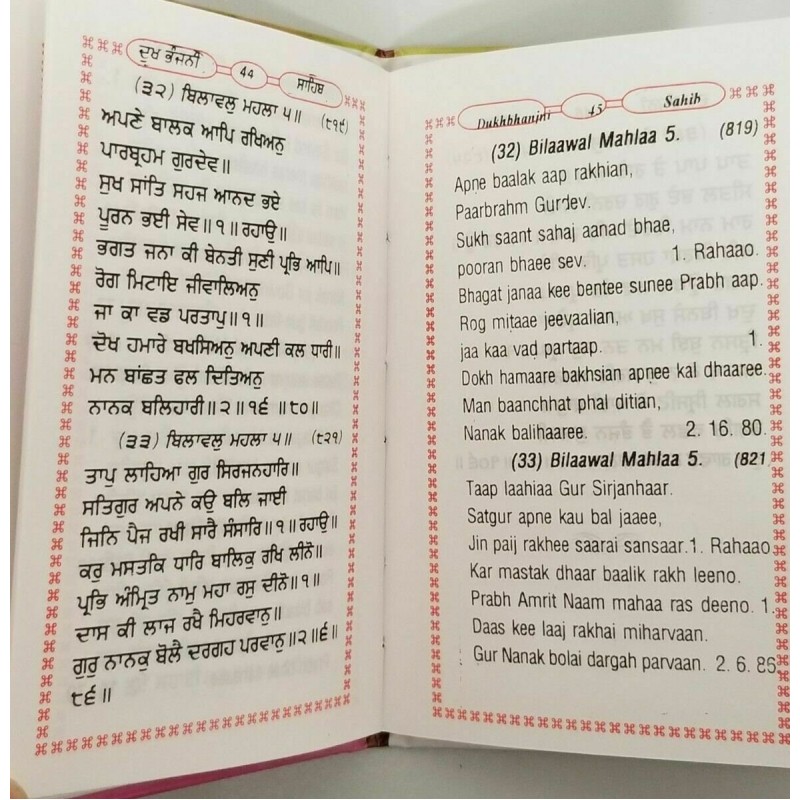 ਦੁਖ ਭੰਜਨੀ 44 ਸਾਹਿਬ
(੩੨) ਬਿਲਾਵਲੁ ਮਹਲਾ ੫॥ (੮੧੯)
ਅਪਣੇ ਬਾਲਕ ਆਪਿ ਰਖਿਅਨੁ
ਪਾਰਬ੍ਰਹਮ ਗੁਰਦੇਵ॥
ਸੁਖ ਸਾਂਤਿ ਸਹਜ ਆਨਦ ਭਏ
ਪੂਰਨ ਭਈ ਸੇਵ॥੧॥ ਰਹਾਉ॥
ਭਗਤ ਜਨਾ ਕੀ ਬੇਨਤੀ ਸੁਣੀ ਪ੍ਰਭਿ ਆਪਿ॥
ਰੋਗ ਮਿਟਾਇ ਜੀਵਾਲਿਅਨੁ
ਜਾ ਕਾ ਵਡ ਪਰਤਾਪੁ॥੧॥
ਦੋਖ ਹਮਾਰੇ ਬਖਸਿਅਨੁ ਅਪਣੀ ਕਲ ਧਾਰੀ॥
ਮਨ ਬਾਂਛਤ ਫਲ ਦਿਤਿਅਨੁ
ਨਾਨਕ ਬਲਿਹਾਰੀ॥੨॥੧੬॥੮੦॥
(੩੩) ਬਿਲਾਵਲੁ ਮਹਲਾ ੫॥ (੮੨੧)
ਤਾਪੁ ਲਾਹਿਆ ਗੁਰ ਸਿਰਜਨਹਾਰਿ॥
ਸਤਿਗੁਰ ਅਪਨੇ ਕਉ ਬਲਿ ਜਾਈ
ਜਿਨਿ ਪੈਜ ਰਖੀ ਸਾਰੈ ਸੰਸਾਰਿ॥੧॥ਰਹਾਉ॥
ਕਰੁ ਮਸਤਕਿ ਧਾਰਿ ਬਾਲਿਕੁ ਰਖਿ ਲੀਨੋ॥
ਪ੍ਰਭਿ ਅੰਮ੍ਰਿਤ ਨਾਮੁ ਮਹਾ ਰਸੁ ਦੀਨੋ॥੧॥
ਦਾਸ ਕੀ ਲਾਜ ਰਖੈ ਮਿਹਰਵਾਨੁ॥
ਗੁਰੁ ਨਾਨਕੁ ਬੋਲੈ ਦਰਗਹ ਪਰਵਾਨੁ॥੨॥੬॥
੮੬॥
Dukhbhanjni 45 Sahib
(32) Bilaawal Mahlaa 5. (819)
Apne baalak aap rakhian,
Paarbrahm Gurdev.
Sukh saant sahaj aanad bhae,
pooran bhaee sev. 1. Rahaao.
Bhagat janaa kee bentee sunee Prabh aap.
Rog miṭaae jeevaalian,
jaa kaa vaḍ partaap. 1.
Dokh hamaare bakhsian apnee kal dhaaree.
Man baanchhat phal ditian,
Nanak balihaaree. 2. 16. 80.
(33) Bilaawal Mahlaa 5. (821
Taap laahiaa Gur Sirjanhaar.
Satgur apne kau bal jaaee,
Jin paij rakhee saarai sansaar.1. Rahaao
Kar mastak dhaar baalik rakh leeno.
Prabh Amrit Naam mahaa ras deeno. 1.
Daas kee laaj rakhai miharvaan.
Gur Nanak bolai dargah parvaan. 2. 6. 86.